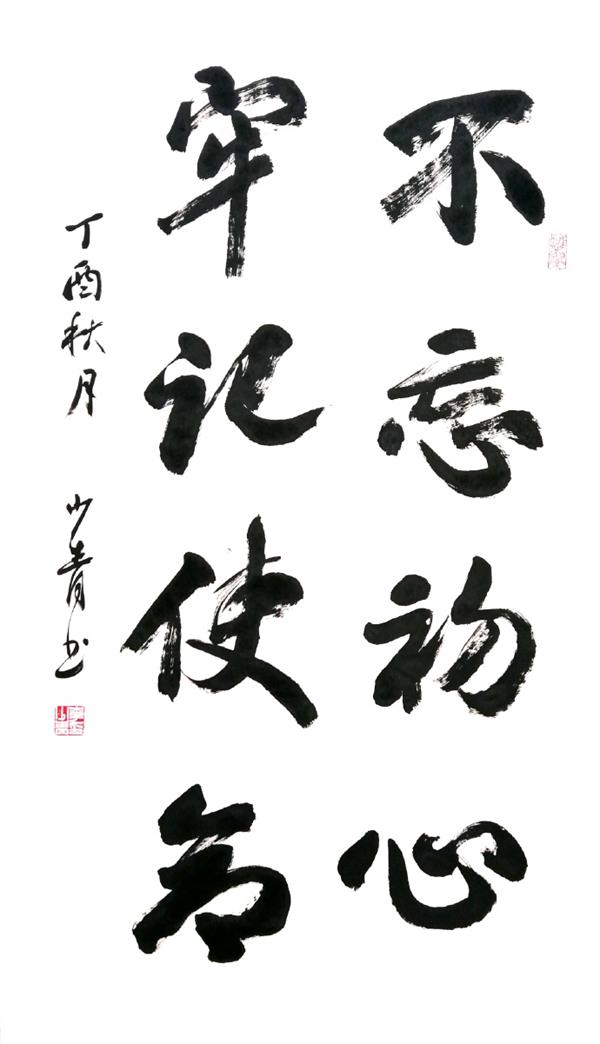 不忘初心
牢记使命
丁酉秋月 少青书